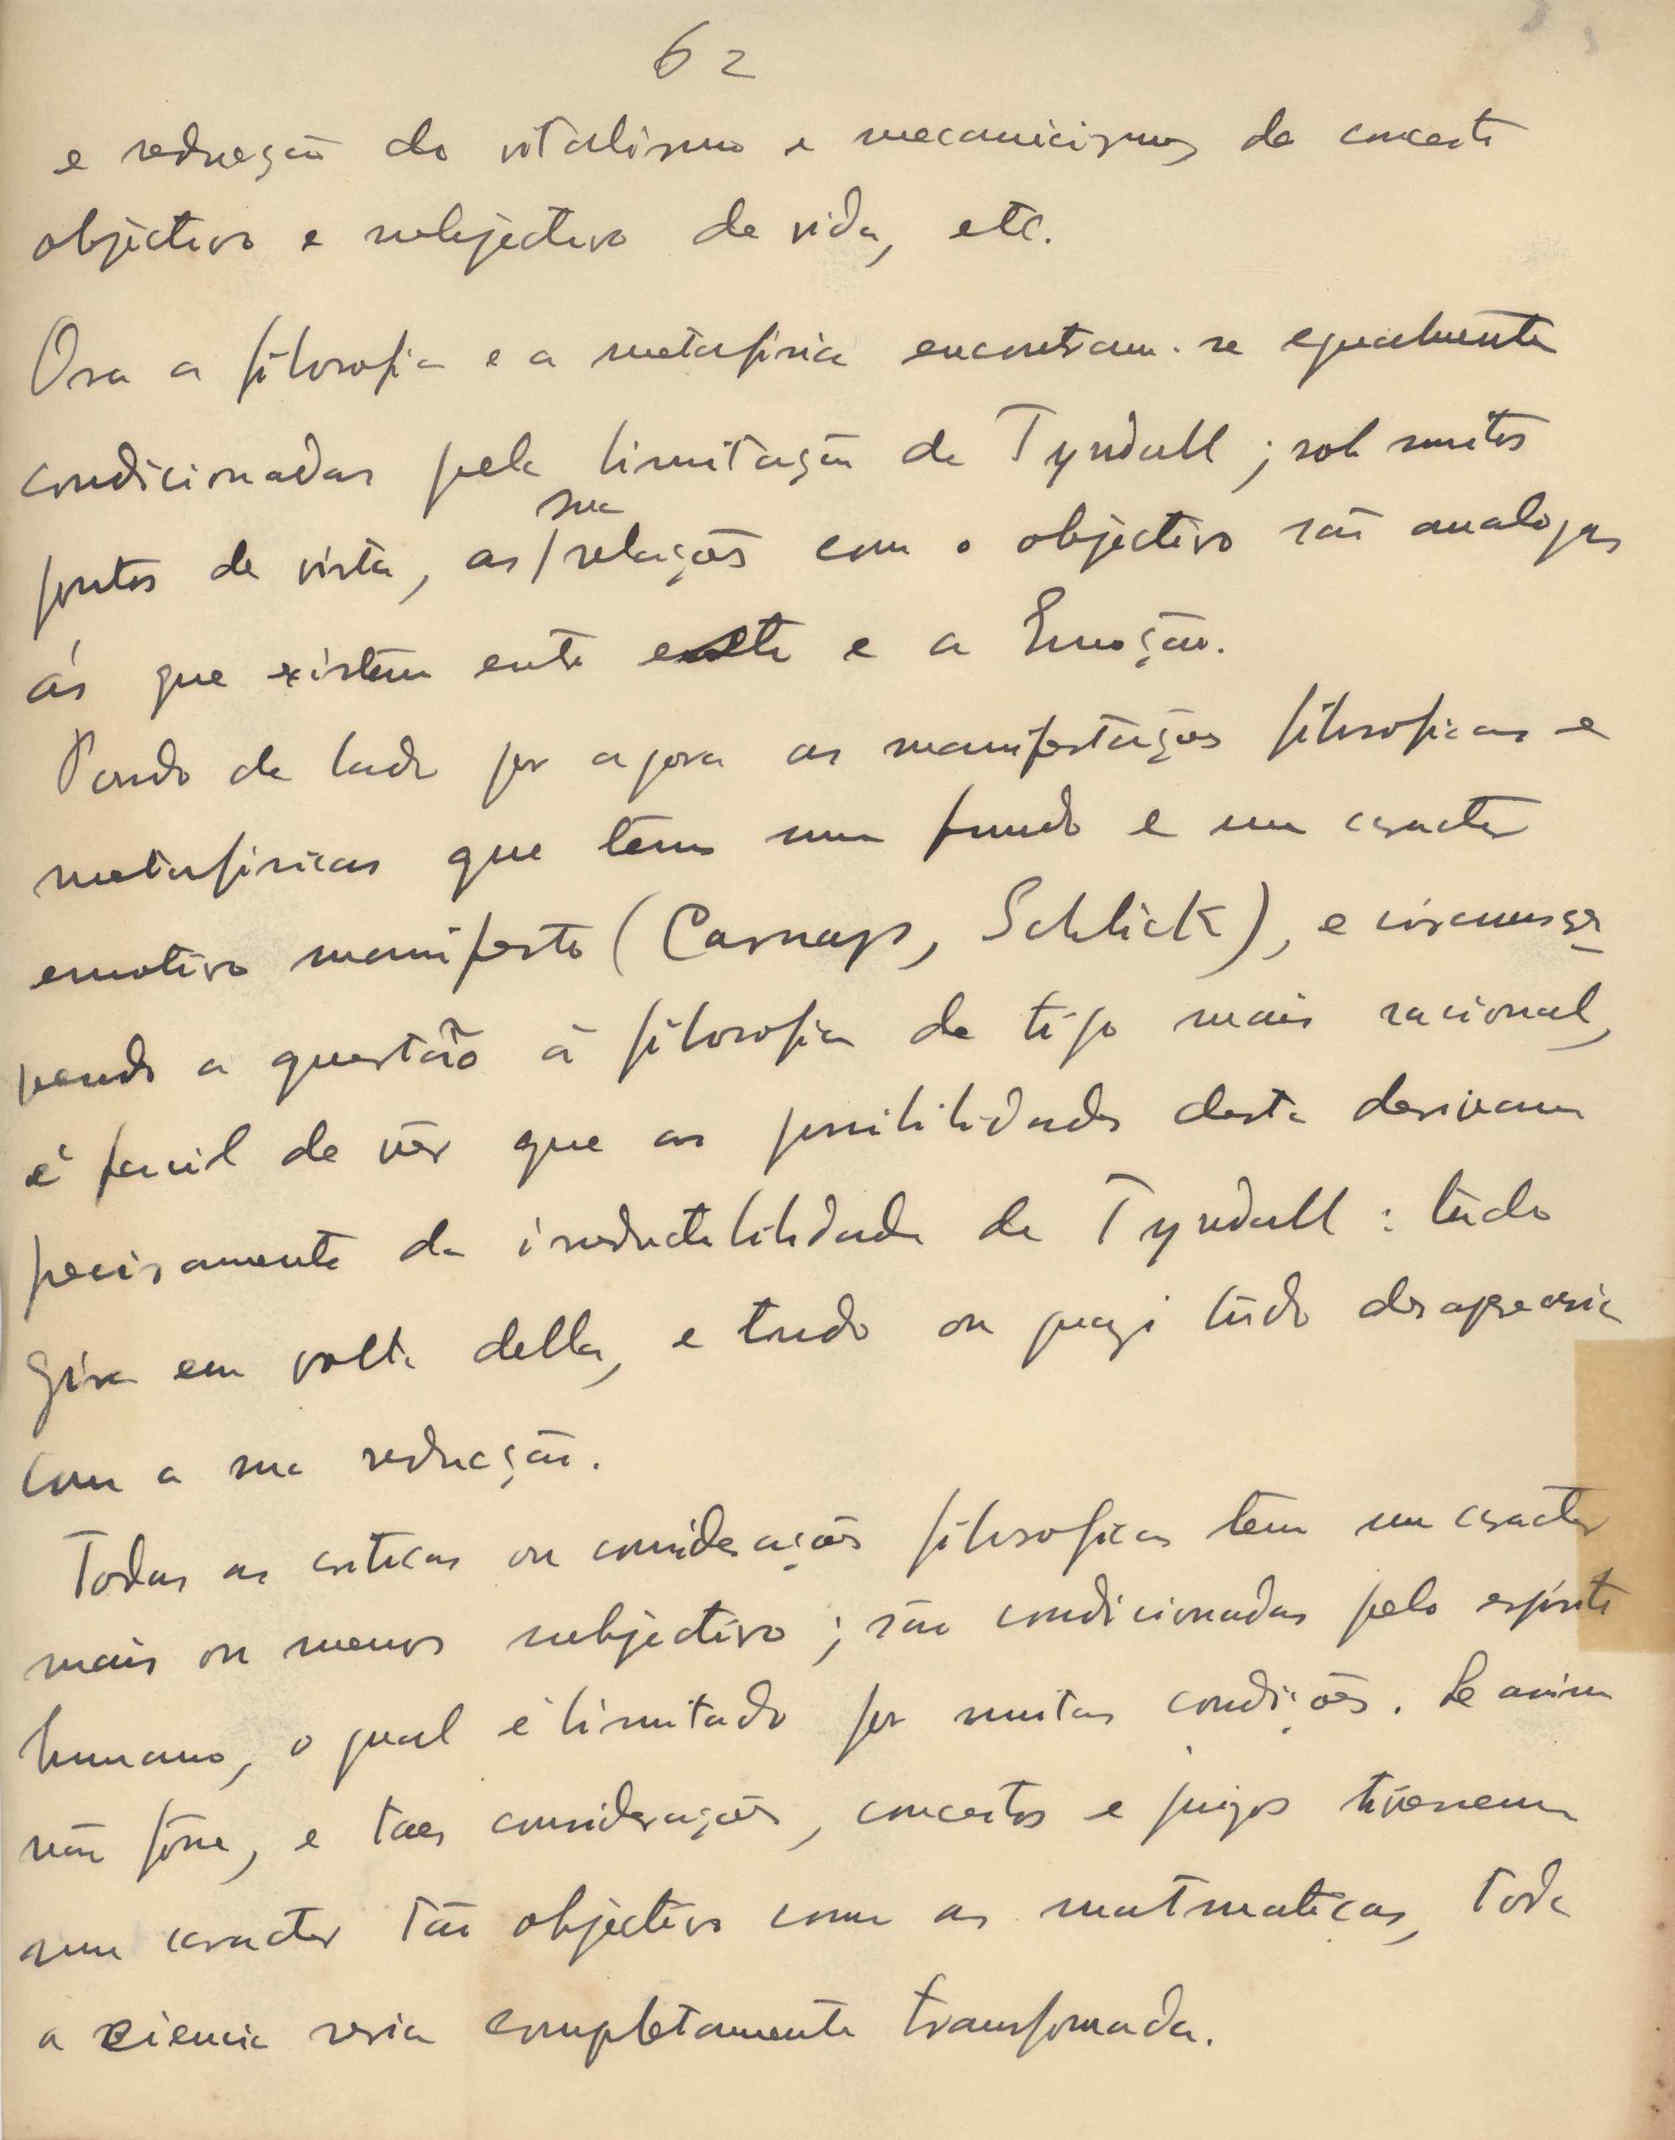 62
e reducção do vitalismo e mecanicismo, do conceito
objectivo e subjectivo de vida, etc.
Ora a filosofia e a metafisica encontram-se egualmente
condicionadas pela limitação de Tyndall; sob muitos
sua
pontos de vista, as / relações com o objectivo são analogas
ás que existem entre este e a Emoção.
Pondo de lado por agora as manifestações filosoficas e
metafisicas que têm um fundo e um caracter
emotivo manifesto (Carnap, Schlick), e circumscre
vendo a questão á filosofia de tipo mais racional,
é facil de vêr que as possibilidades desta derivam
precisamente da irreductibilidade de Tyndall: tudo
gira em volta della, e tudo ou quazi tudo desapareceria
com a sua reducção.
Todas as criticas ou considerações filosoficas tem um caracter
mais ou menos subjectivo; são condicionadas pelo espirito
humano, o qual é limitado por muitas condições. Se assim
não fôsse, e taes considerações, conceitos e juizos tivessem
um caracter tão objectivo como as matmaticas, toda
a ciencia seria completamente transformada.